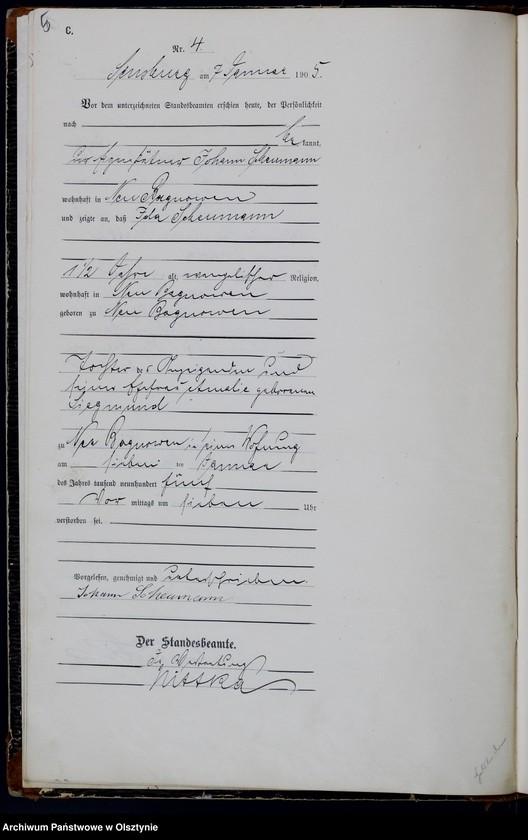 5
C.
Nr. 4
Sensburg am 7 Januar 1905.
Vor dem unterzeichneten Standesbeamten erschien heute, der Persönlichkeit
nach
be kannt,
der Johann Scheumann
wohnhaft in Neu Bagnowen
und zeigte an, daß Ida Scheumann
1 1/2 Jahre alt, evangelischer Religion,
wohnhaft in Neu Bagnowen
geboren zu Neu Bagnowen
Tochter des Anzeigenden und
seiner Ehefrau Amalie geborenen
Siegmund
zu Neu Bagnowen in seiner Wohnung
am sieben ten Januar
des Jahrs tausend neunhundert fünf
Vor mittags um sieben Uhr
verstorben sei.
Vorgelesen, genehmigt und unterschrieben
Johann Scheumann
Der Standesbeamte.
In Vertretung
Nittka
Archiwum Państwowe w Olsztynie